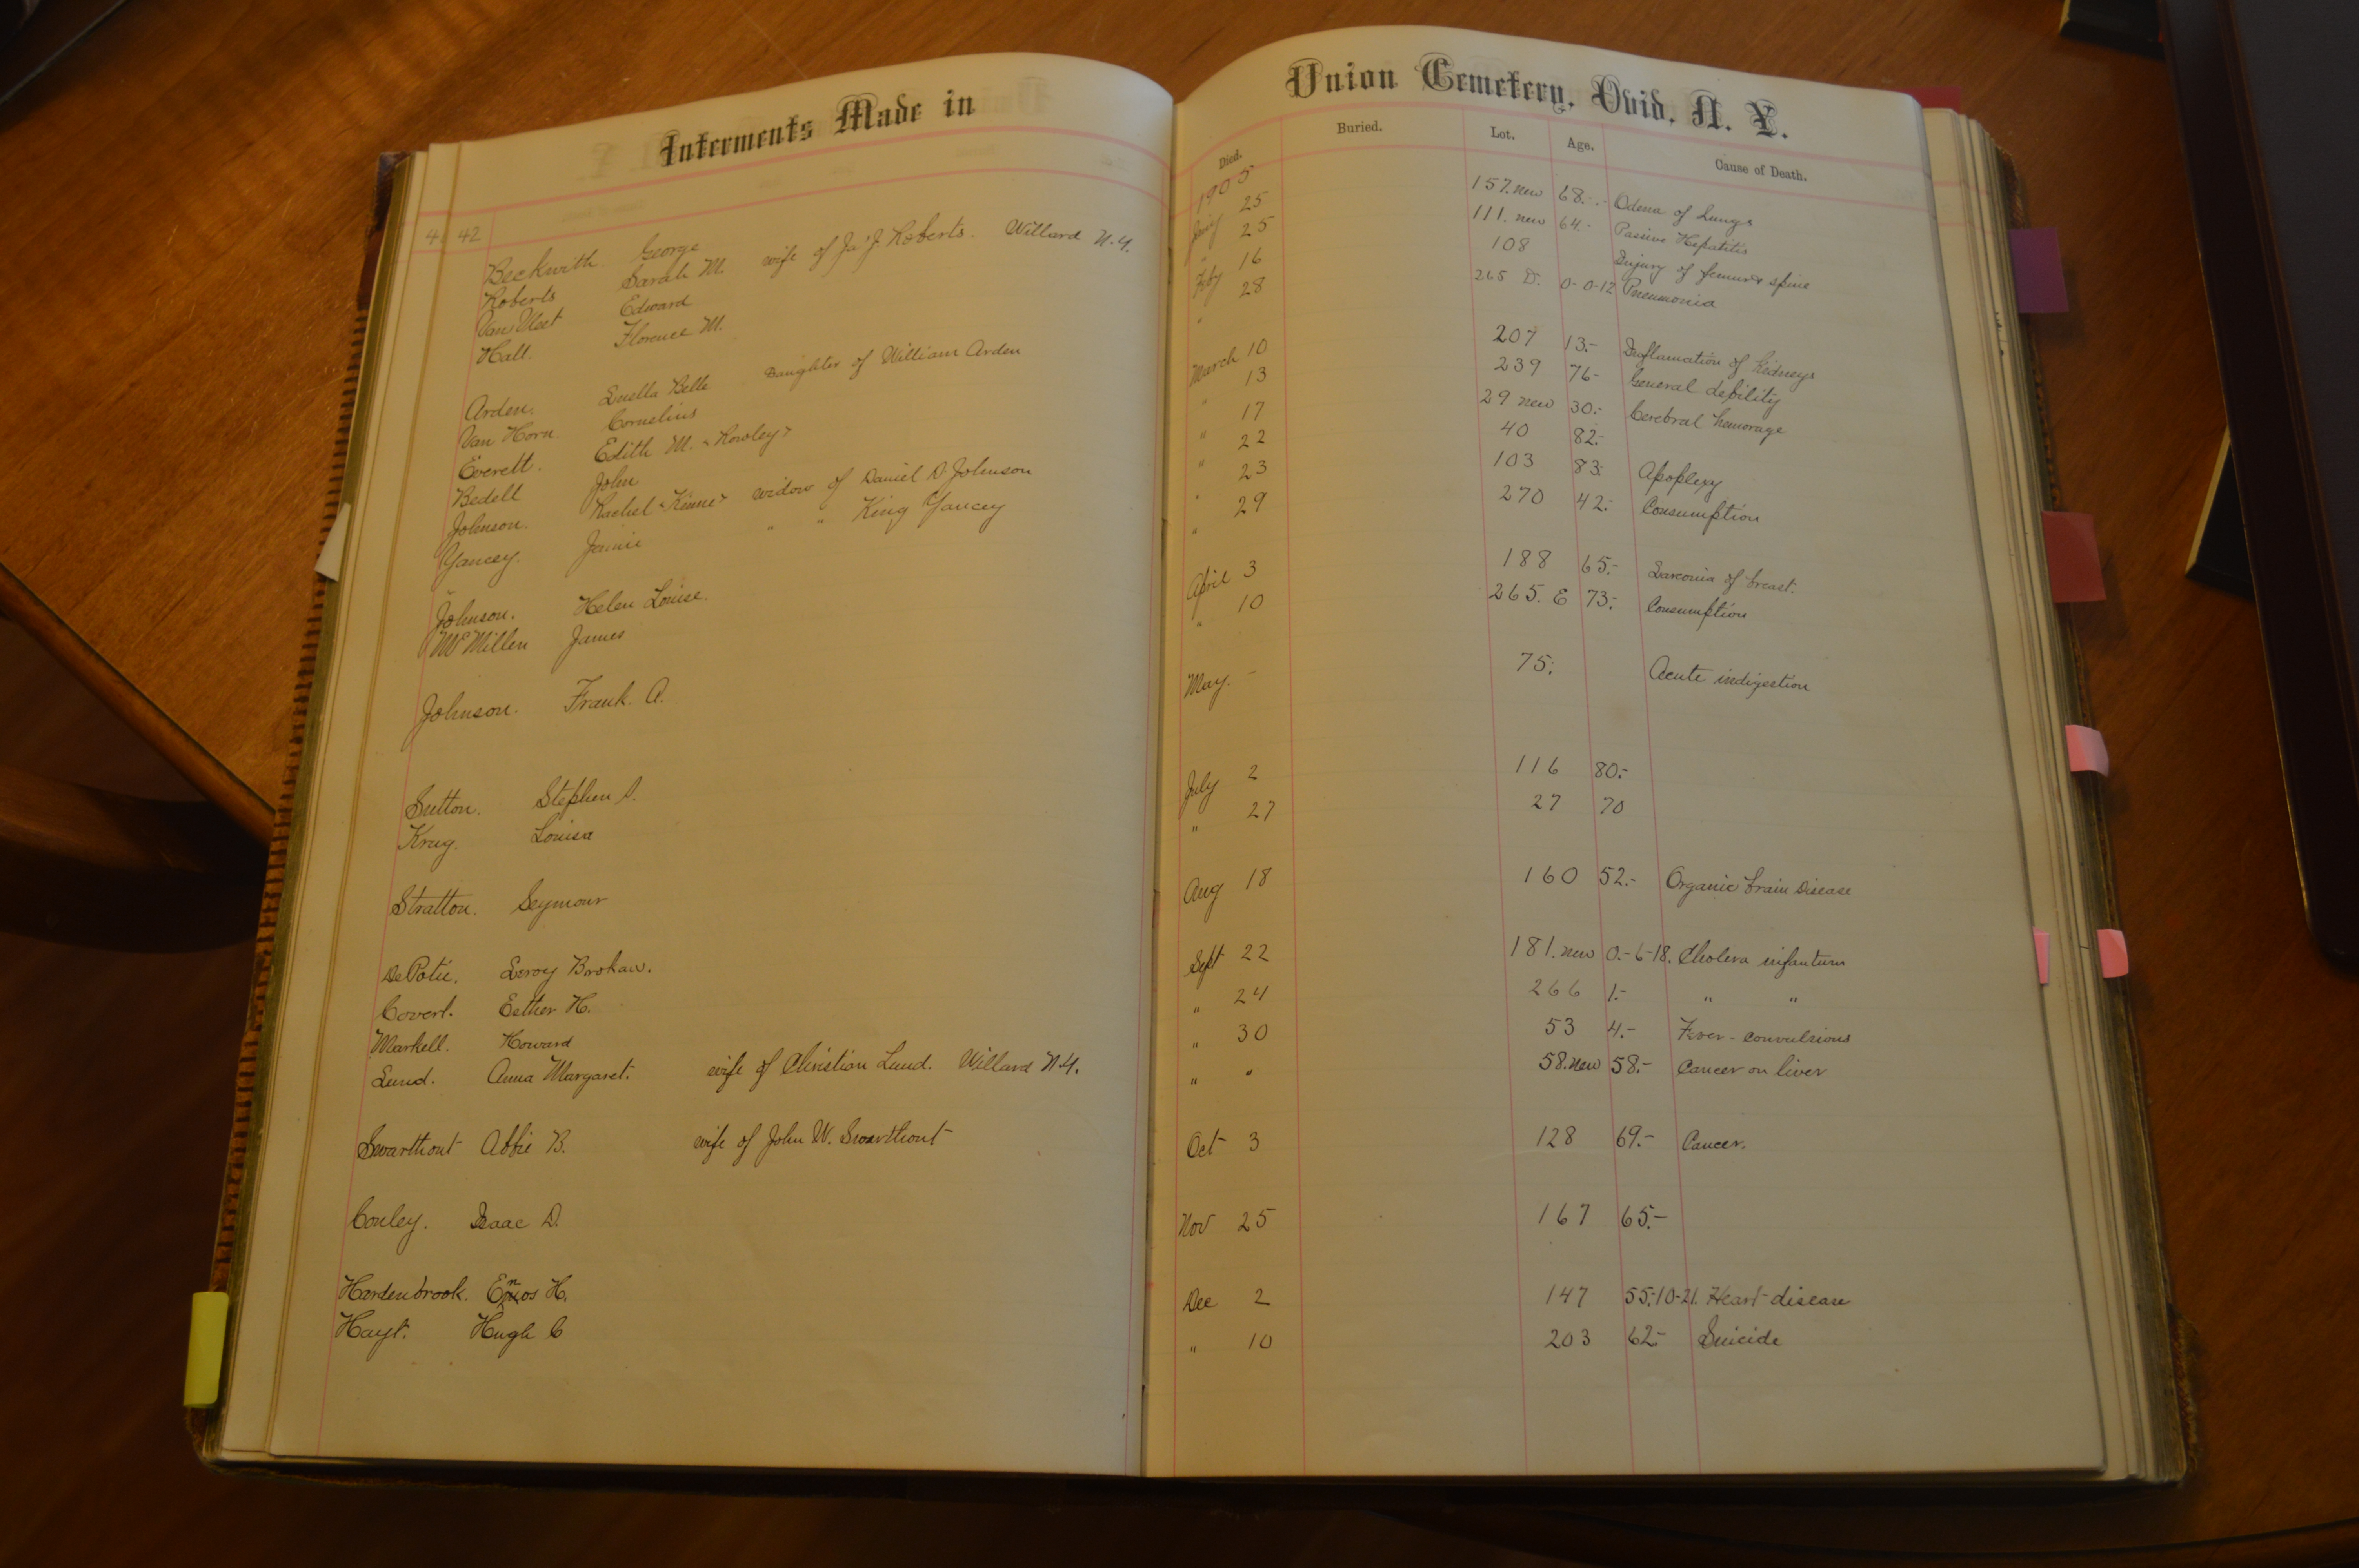 Interments Made in Union Cemetery, Ovid, N. Y.
Died. Buried. Lot. Age. Cause of Death.
42 1905
Beckwith. George 25 157. new 68. Odema of Lungs
Roberts Sarah M. wife of Ja's J. Roberts. Willard N.Y. " 25 111. new 64.- Passive Hepatitis
Van Vleet Edward Feby 16 108 Injury of femur & spine
Hall. Florence M. " 28 265 D. 0-0-12 Pneumonia
Arden. Luella Belle Daughter of William Arden March 10 207 13.- Inflamation of Kidneys
Van Horn Cornelius " 13 239 76- General debility
Everett. Edith M. <Rowley> " 17 29 new 30.- Cerebral hemorage
Bedell John " 22 40 82.-
Johnson. Rachel <Kinne> widow of Daniel D. Johnson " 23 103 83. Apoplexy
Yancey. " " King Yancey " 29 270 42.- Consumption
Johnson. Helen Louise. April 3 188 65.- Sarcomia of breast.
McMillen James " 10 265. E 73.- Consumption
Johnson. Frank. A. May. - 75. Acute indigestion
Sutton. Stephen S. July 2 116 80.-
Krug. Louisa " 27 27 70
Stratton. Seymour Aug 18 160 52.- Organic brain Disease
DePotie. Leroy Brokaw. Sept 22 181. new 0.-6-18. Cholera infantum
Covert. Esther H. " 24 266 1.- " "
Markell. Howard " 30 53 4.- Fever - convulsions
Lund. Anna Margaret. wife of Christian Lund. Willard N.Y. " " 58. new 58.- Cancer on liver
Swarthout Abbie B. wife of John W. Swarthout Oct 3 128 69.- Cancer.
Conley. Isaac D. Nov 25 167 65.-
Hardenbrook. Enos H. Dec 2 147 55.-10-21. Heart disease
Hayt. Hugh C " 10 203 62- Suicide